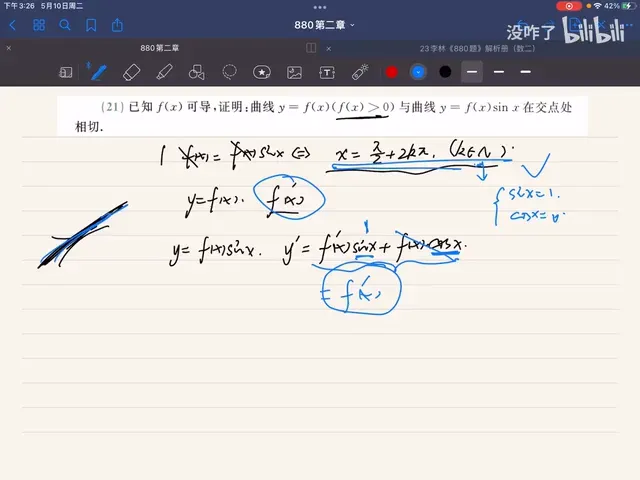 下午3:26 5月10日周二
42%
880 第二章
没咋了 bilibili
880 第二章
23李林《880题》解析册（数二）
(21) 已知 f(x) 可导,证明:曲线 y = f(x)(f(x) > 0) 与曲线 y = f(x)sin x 在交点处
相切.
1 f(x) = f(x) sin x ⇔ x = π/2 + 2kπ, (k∈N).
{ sin x = 1.
cos x = 0.
y = f(x). f'(x)
1
y = f(x) sin x. y' = f'(x) sin x + f(x) cos x.
= f'(x)